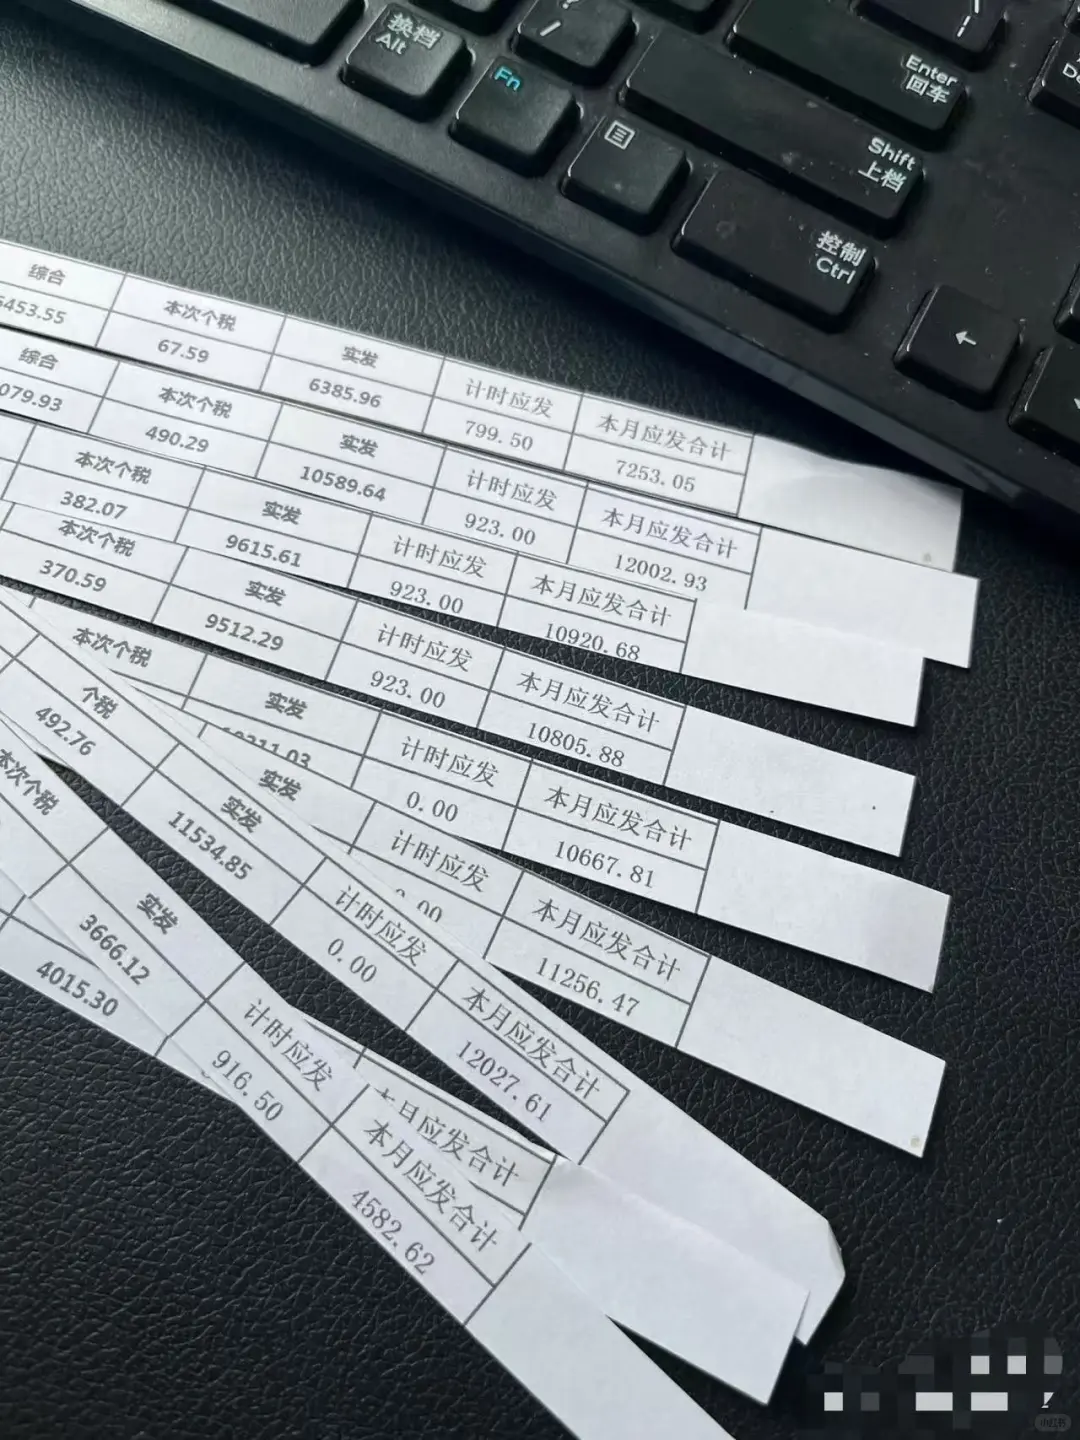 换档
Alt
Fn
? /
Enter
回车
Shift
上档
控制
Ctrl
←
综合 本次个税 实发 计时应发 本月应发合计
6453.55 67.59 6385.96 799.50 7253.05
综合 本次个税 实发 计时应发 本月应发合计
079.93 490.29 10589.64 923.00 12002.93
本次个税 实发 计时应发 本月应发合计
382.07 9615.61 923.00 10920.68
本次个税 实发 计时应发 本月应发合计
370.59 9512.29 923.00 10805.88
本次个税 实发 计时应发 本月应发合计
0.00 10667.81
实发 计时应发 本月应发合计
0.00 11256.47
个税 实发 计时应发 本月应发合计
492.76 11534.85 0.00 12027.61
本月应发合计
本次个税 实发 计时应发 本月应发合计
3666.12 916.50 4582.62
4015.30
小红书